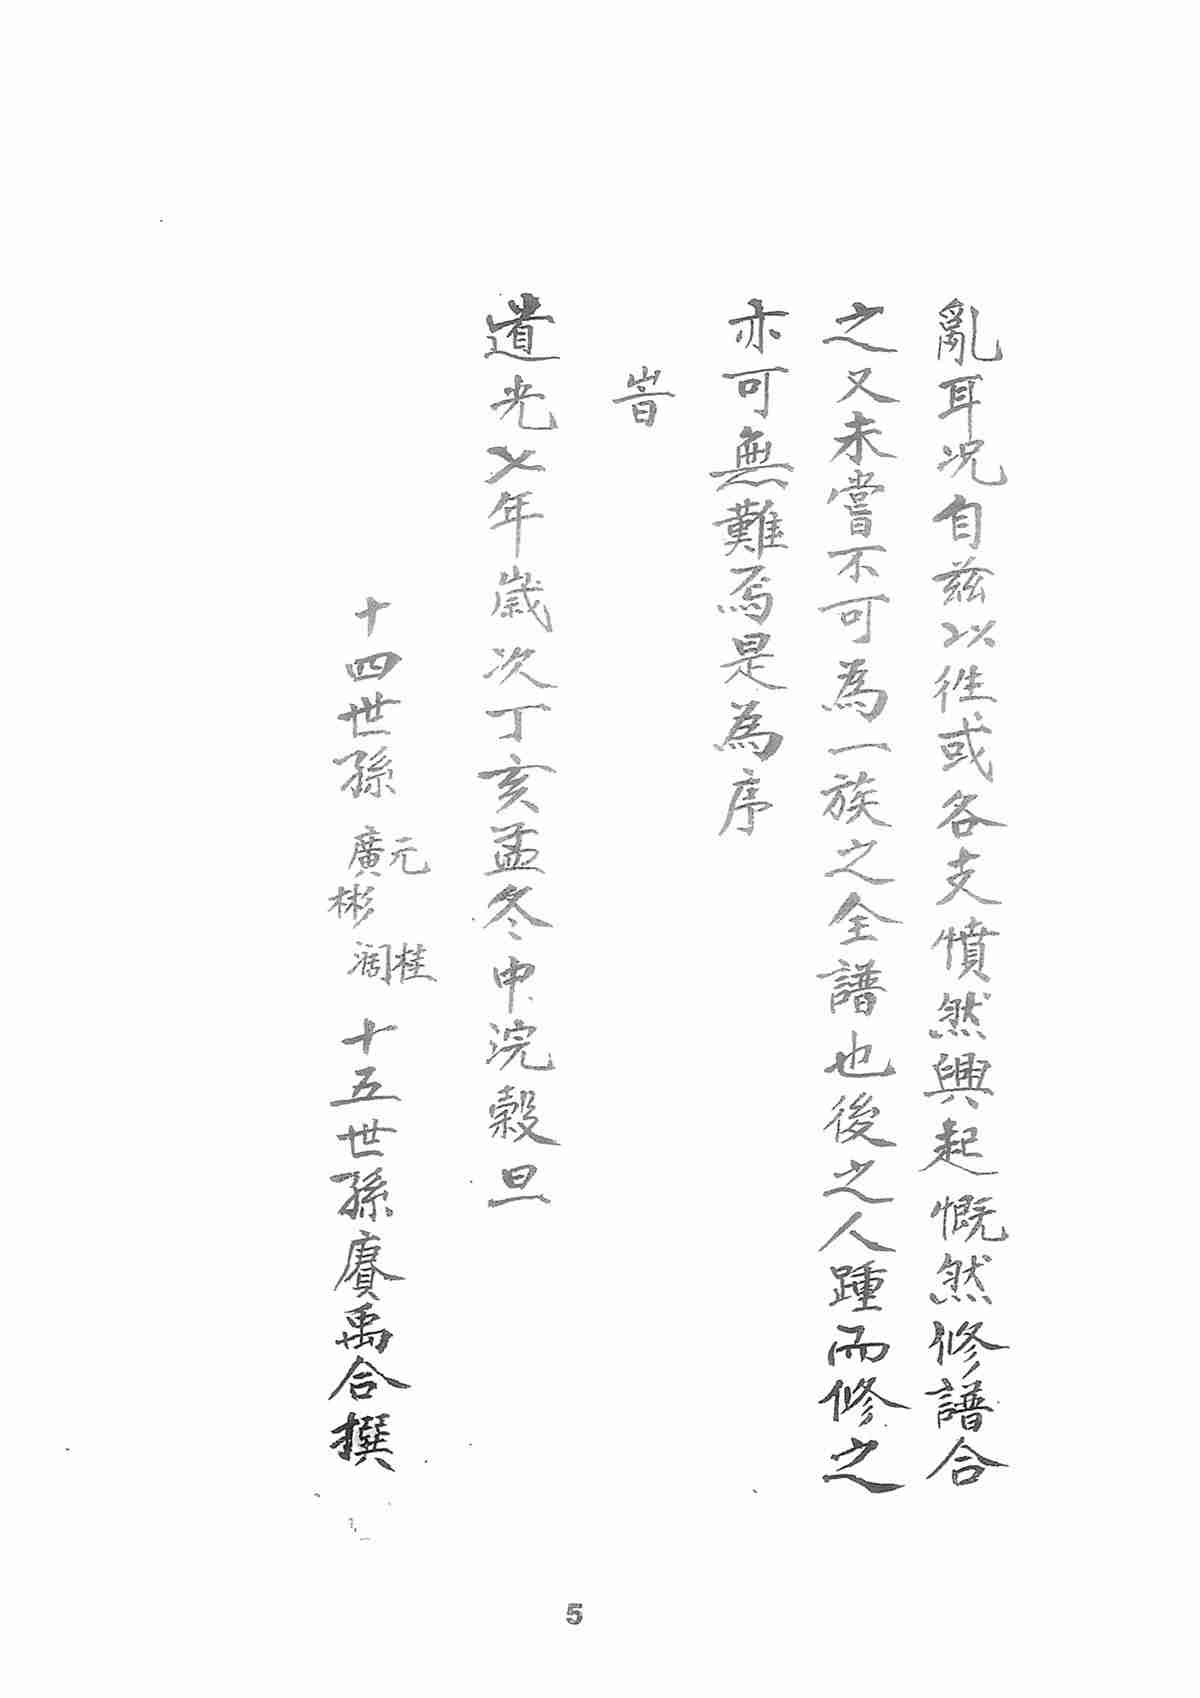 亂耳况自兹以徃或各支憤然興起慨然修譜合
之又未嘗不可為一族之全譜也後之人踵而修之
亦可無難焉是為序
旹
道光七年歲次丁亥孟冬中浣穀旦
十四世孫 元廣彬 桂濶 十五世孫賡禹合撰
5